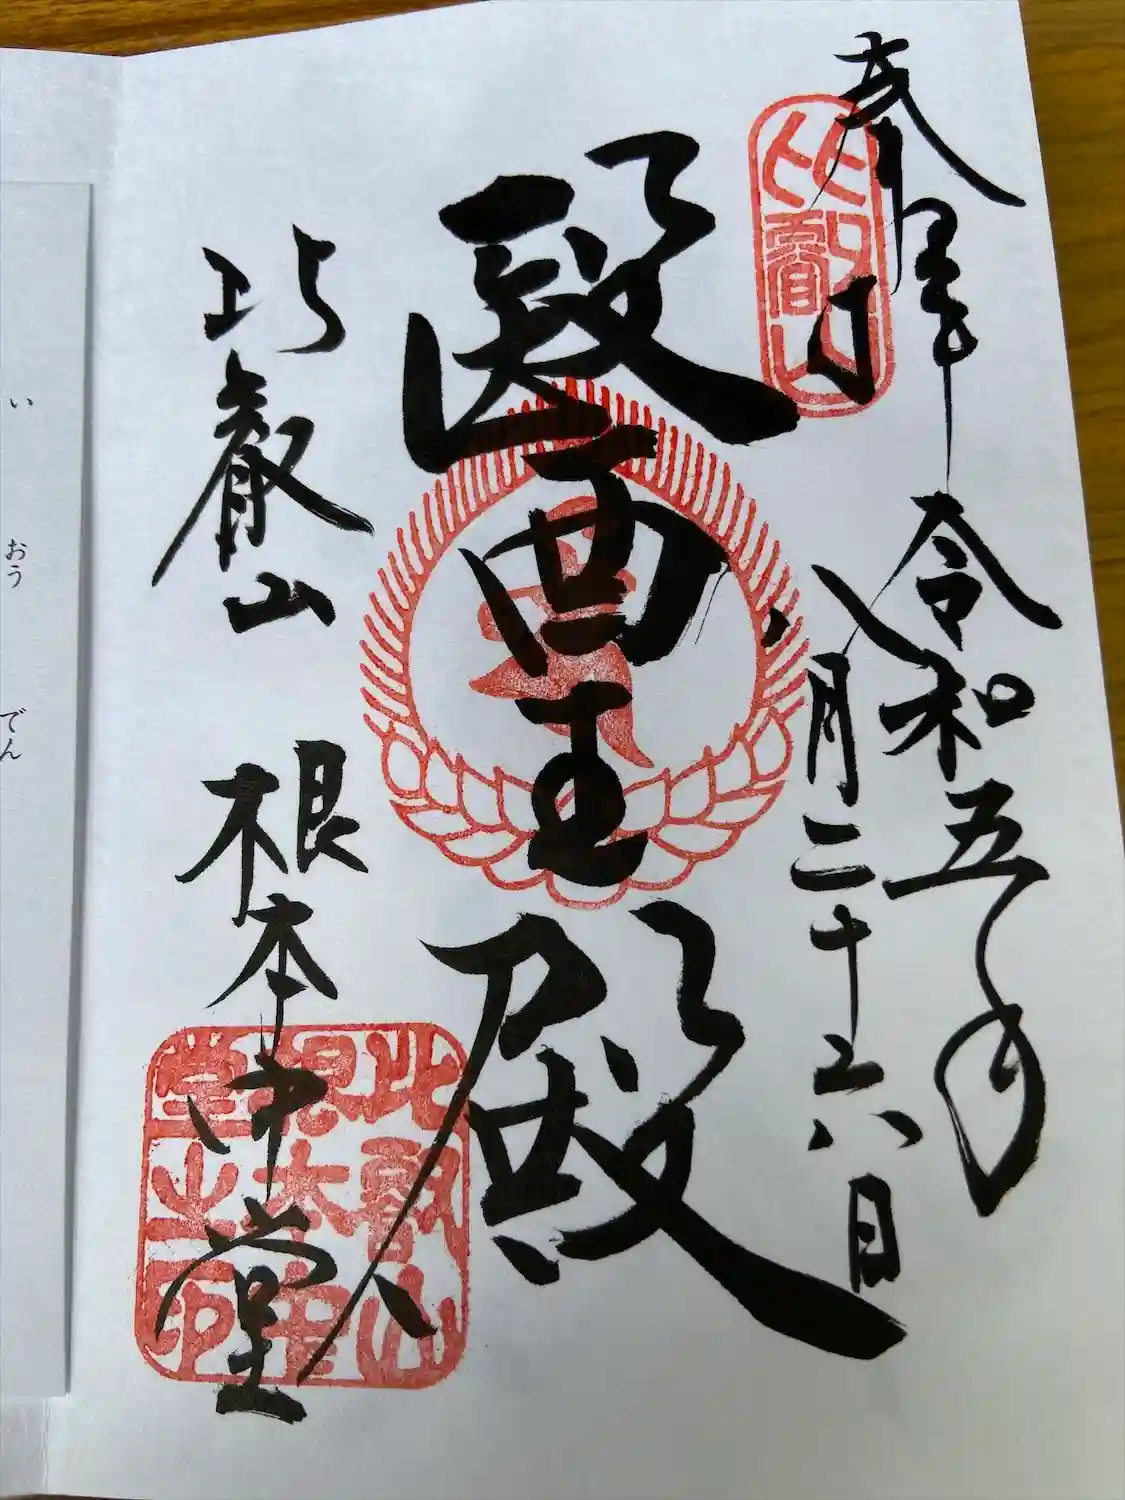 奉拝
令和五年
八月二十六日
比叡山
醫王殿
比叡山 根本中堂
比叡山
根本中
堂之印
い
おう
でん